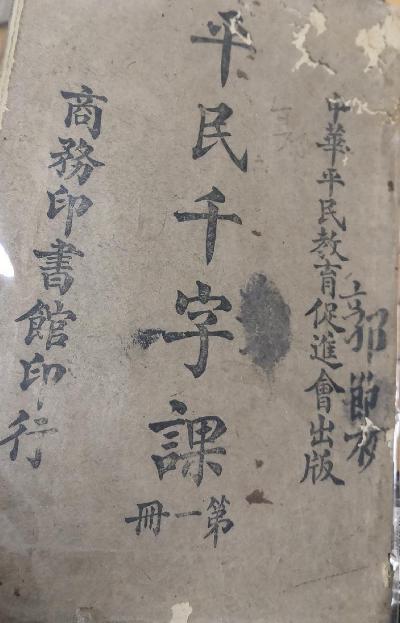 中華平民教育促進會出版
平民千字課
第一冊
商務印書館印行
郭節